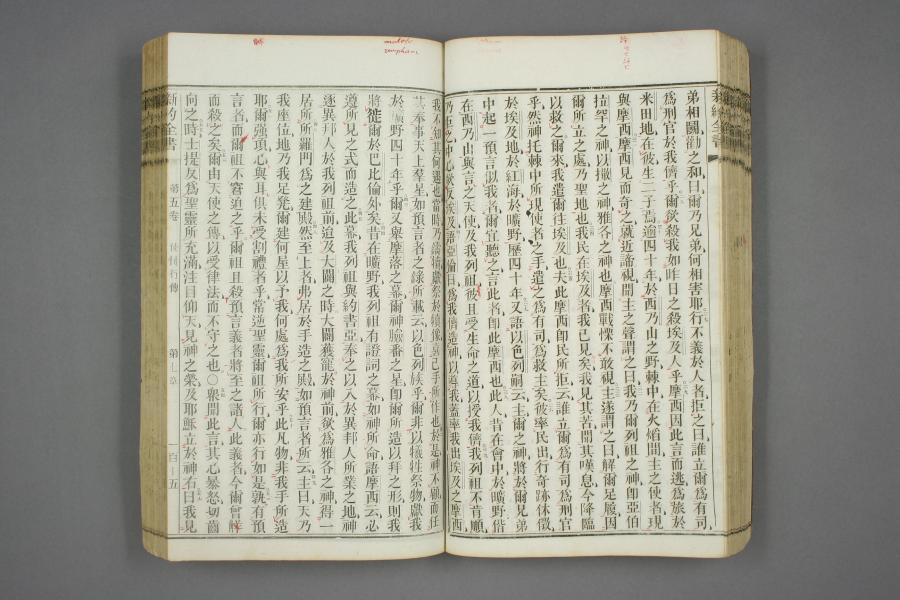 弟相鬬勸之和曰爾乃兄弟何相害耶行不義於人者拒之曰誰立爾爲有司
爲刑官於我儕乎爾欲殺我如昨日之殺埃及人乎摩西因此言而逃爲旅於
米田地在彼生二子焉逾四十年於西乃山之野棘中在火焰間主之使者現
與摩西摩西見而奇之就近諦視聞主之聲謂之曰我乃爾列祖之神卽亞伯
拉罕之神以撒之神雅各之神也摩西戰慄不敢視主遂謂之曰解爾足履因
爾所立之處乃聖地也我民在埃及者我已見矣我見其苦聞其嘆息今降臨
以救之爾來我遣爾往埃及也夫此摩西卽民所拒云誰立爾爲有司爲刑官
乎然神托棘中所現使者之手遣之爲有司爲救主矣彼率民出行奇跡休徵
於埃及地於紅海於曠野歷四十年又語以色列嗣云主爾之神將於爾兄弟
中起一預言似我者爾宜聽之言此者卽此摩西也此人昔在會中於曠野偕
在西乃山與言之天使及我列祖彼且受生命之道以授我儕我列祖不肯順
乃拒之中心欲反埃及語亞倫曰爲我儕造神以導我蓋率我出埃及之摩西
我不知其何遇也當時乃鑄犢獻祭於像喜己手所作也於是神不顧而任
其奉事天上羣星如預言者之錄所載云以色列族乎爾非以犧牲祭物獻我
於曠野四十年乎爾又舁摩落之幕爾神臉番之星卽爾所造以拜之形則我
將徙爾於巴比倫外矣昔在曠野我列祖有證詞之幕如神所命語摩西云必
遵所見之式而造之此幕我列祖與約書亞奉之以入於異邦人所業之地神
逐異邦人於我列祖前迨及大闢之時大闢獲寵於神前欲爲雅各之神得一
居所所羅門爲之建殿然至上者弗居於手造之殿如預言者所云主曰天乃
我座位地乃我足凳爾建何屋以予我何處爲我所安乎此凡物非我手所造
耶爾強項心與耳俱未受割禮者乎常逆聖靈爾祖所行爾亦行如是孰有預
言者而爾祖不窘迫之乎爾祖且殺預言義者將至之諸人此義者今爾曾悖
而殺之矣爾由天使之傳以受律法而不守之也〇衆聞此言其心暴怒切齒
向之時士提反爲聖靈所充滿注目仰天見神之榮及耶穌立於神右曰我見
新約全書
第五卷
使徒行傳
第七章